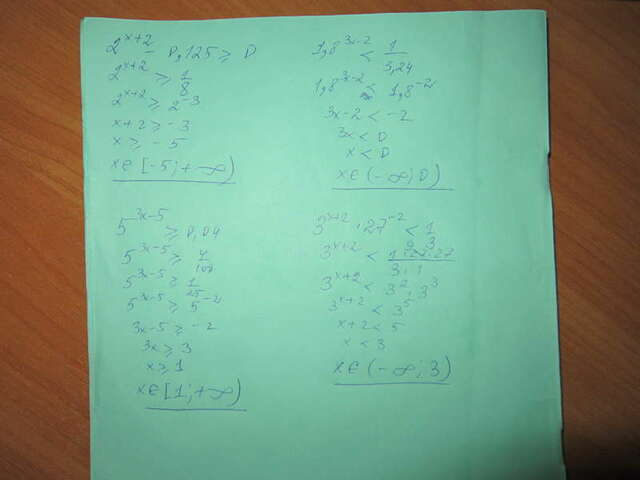 2^(x+2) - 0,125 ≥ 0
2^(x+2) ≥ 1/8
2^(x+2) ≥ 2^(-3)
x+2 ≥ -3
x ≥ -5
x ∈ [-5; +∞)
1,8^(3x-2) < 1/5,24
1,8^(3x-2) < 1,8^(-2)
3x-2 < -2
3x < 0
x < 0
x ∈ (-∞; 0)
5^(3x-5) ≥ 0,04
5^(3x-5) ≥ 4/100
5^(3x-5) ≥ 1/25
5^(3x-5) ≥ 5^(-2)
3x-5 ≥ -2
3x ≥ 3
x ≥ 1
x ∈ [1; +∞)
3^(x+2) · 27^(-2) < 1/3
3^(x+2) <
3^(x+2) < 3^2 · 3^3
3^(x+2) < 3^5
x+2 < 5
x < 3
x ∈ (-∞; 3)